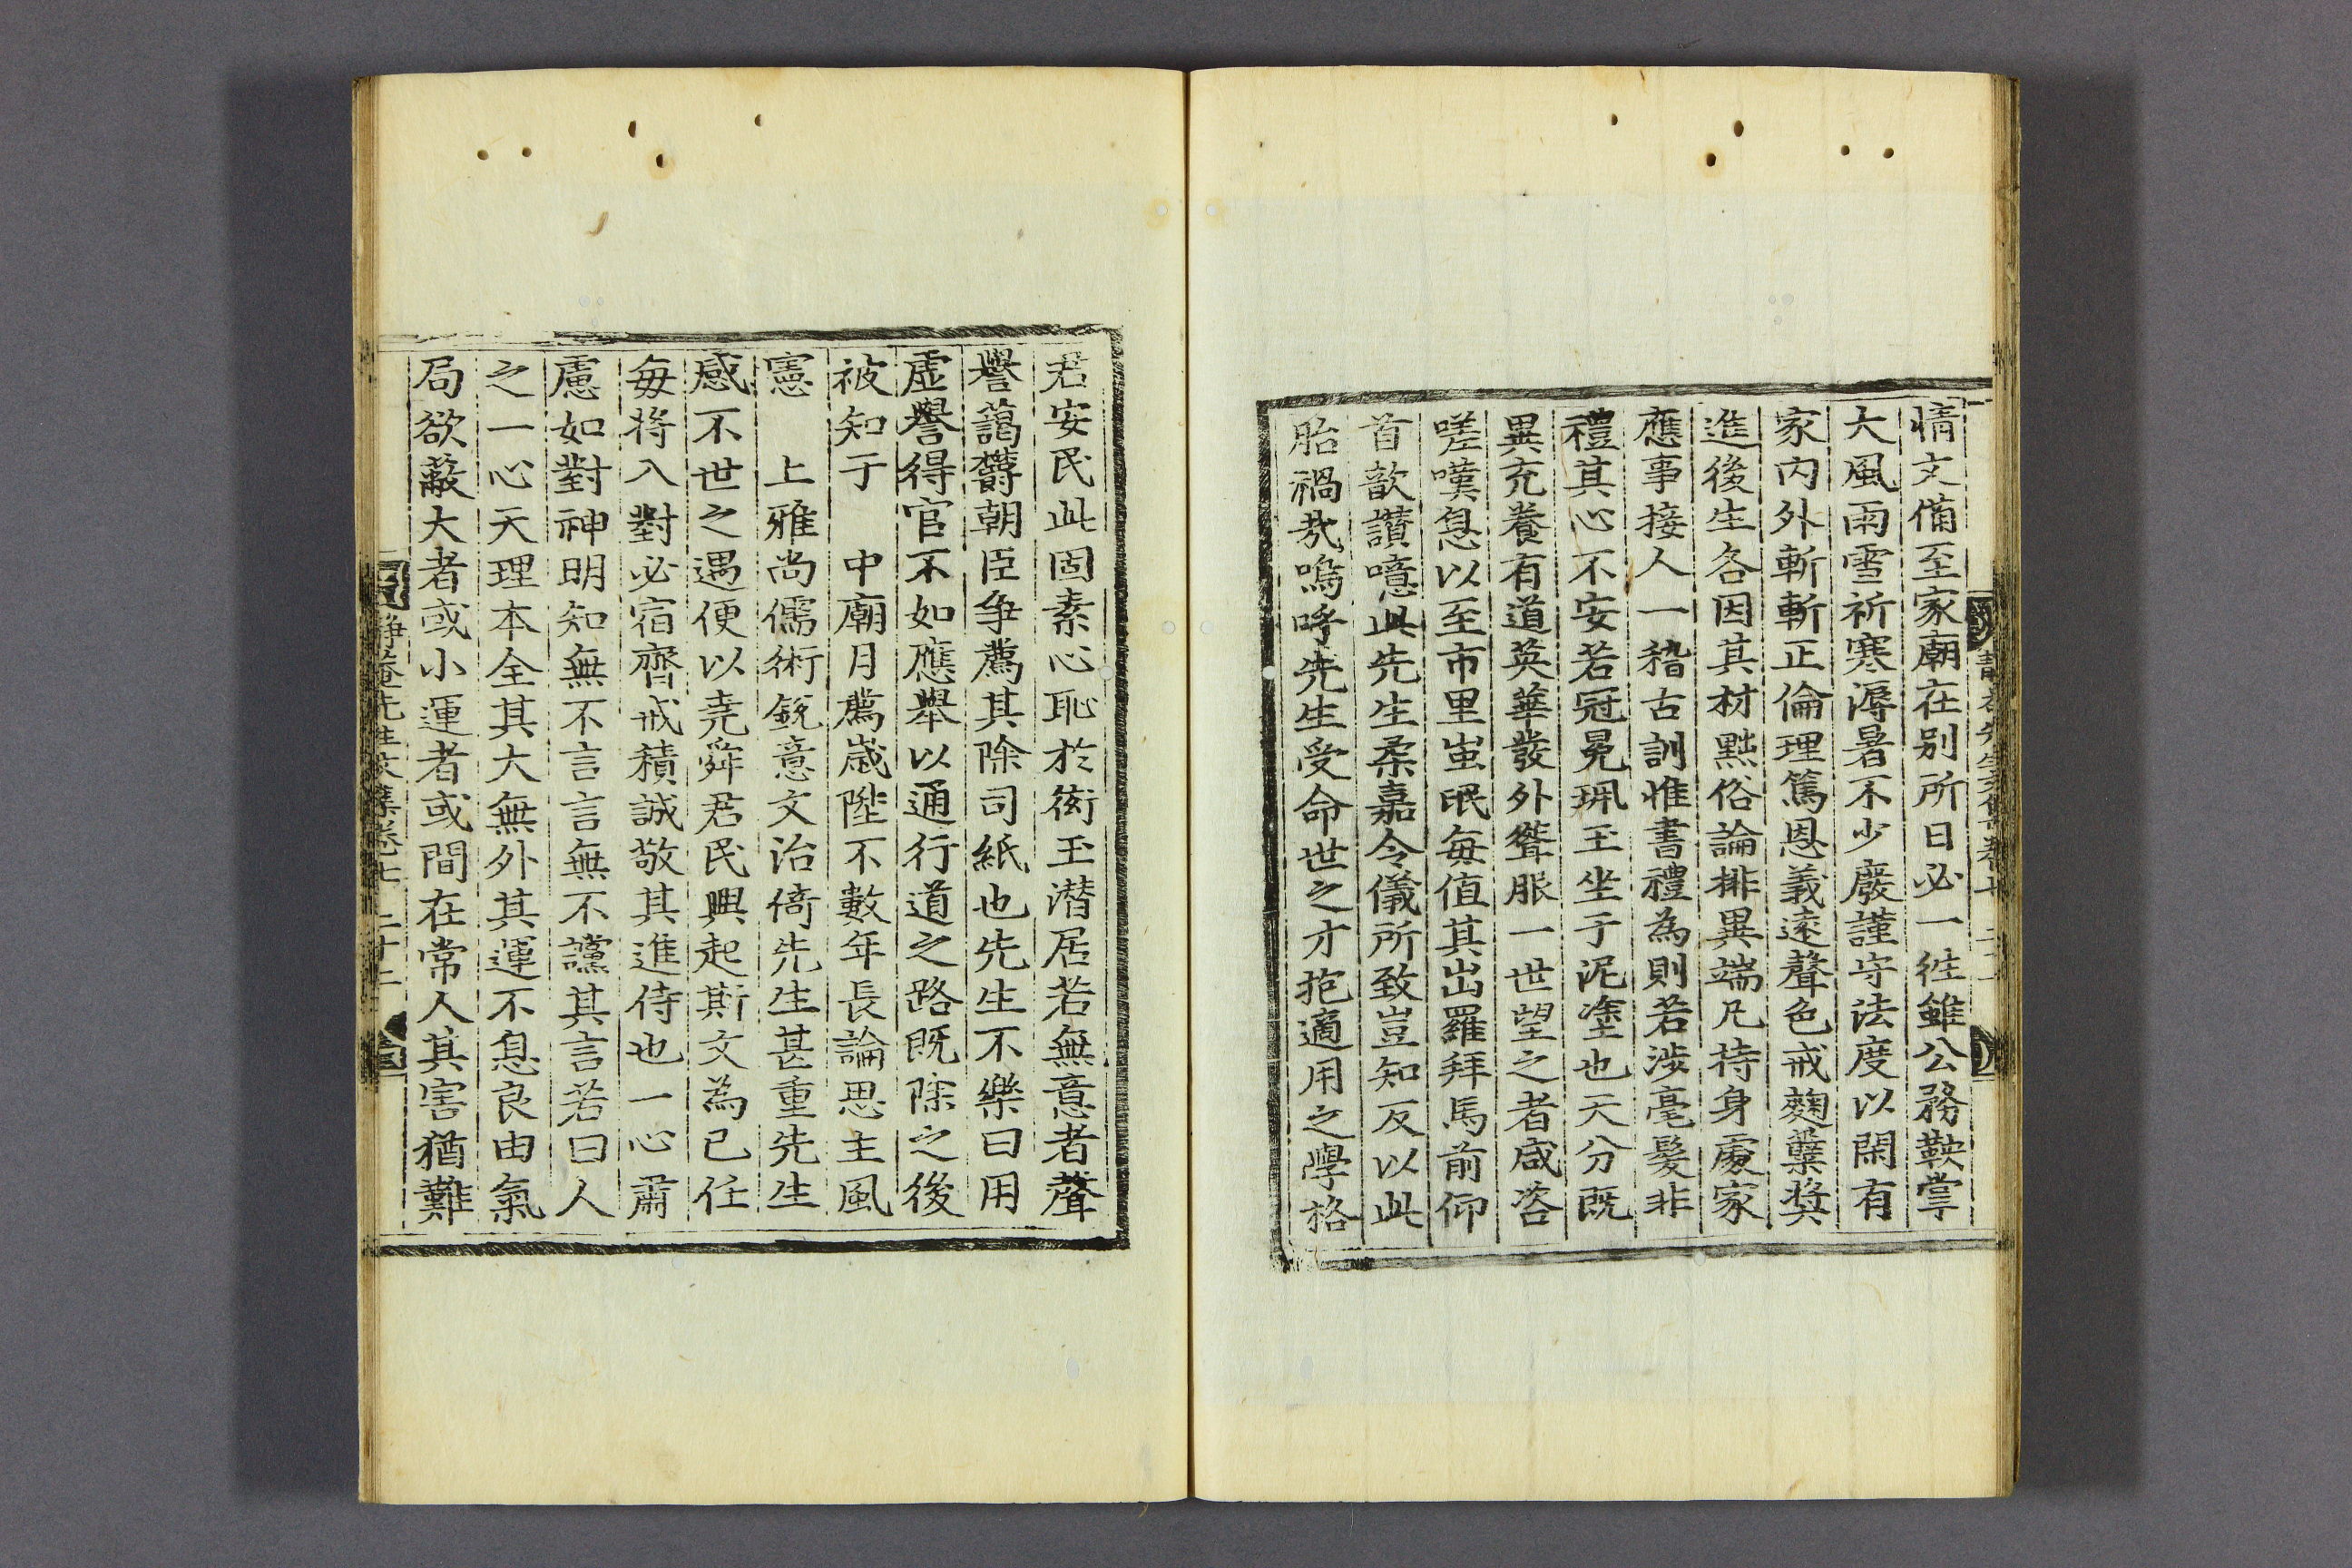 情文備至家廟在別所日必一徃雖公務鞅掌
大風雨雪祈寒溽暑不少廢謹守法度以閑有
家内外斬斬正倫理篤恩義遠聲色戒麴糵奬
進後生各因其材黜俗論排異端凡持身處家
應事接人一稽古訓惟書禮為則若渉毫髮非
禮其心不安若冠冕珮玉坐于泥塗也天分旣
異充養有道英華發外聳服一世望之者咸咨
嗟嘆息以至市里蚩氓每值其出羅拜馬前仰
首歆讃噫此先生柔嘉令儀所致豈知反以此
胎禍㢤嗚呼先生受命世之才抱適用之學格
君安民此固素心恥於衒玉潜居若無意者聲
譽藹欝朝臣争薦其除司紙也先生不樂曰用
虚譽得官不如應舉以通行道之路旣除之後
被知于　中廟月薦歲陞不數年長論思主風
憲　上雅尚儒術銳意文治倚先生甚重先生
感不世之遇便以堯舜君民興起斯文為已任
每將入對必宿齊戒積誠敬其進侍也一心肅
慮如對神明知無不言言無不讜其言若曰人
之一心天理本全其大無外其運不息良由氣
局欲蔽大者或小運者或間在常人其害猶難
靜菴先生文集卷七 二十二